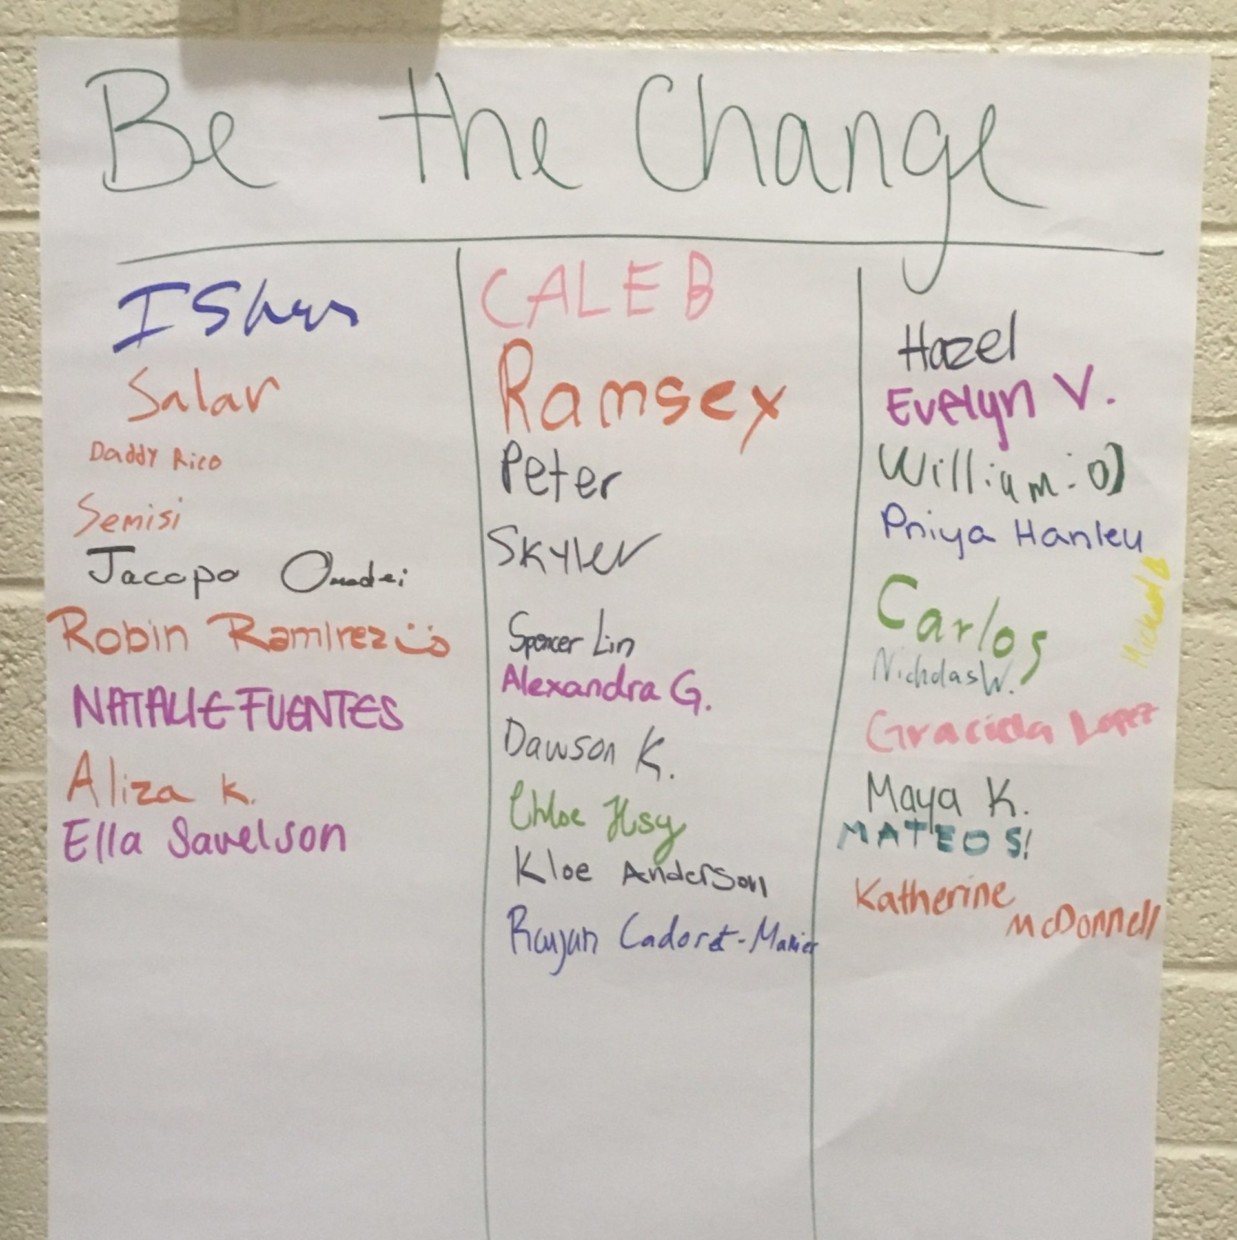 Be the Change
Salar
Daddy Rico
Semisi
Jacopo
Robin Ramirez
NATALIE FUENTES
Aliza K.
Ella Savelson
CALEB
Ramsey
Peter
Skyler
Spencer Lin
Alexandra G.
Dawson K.
Chloe Hsy
Kloe Anderson
Rayan Cadoret-Manier
Hazel
Evelyn V.
William :0)
Priya Hanley
Carlos
Nicholas W.
Graciela Lopez
Maya K.
MATEO S!
Katherine
McDonnell